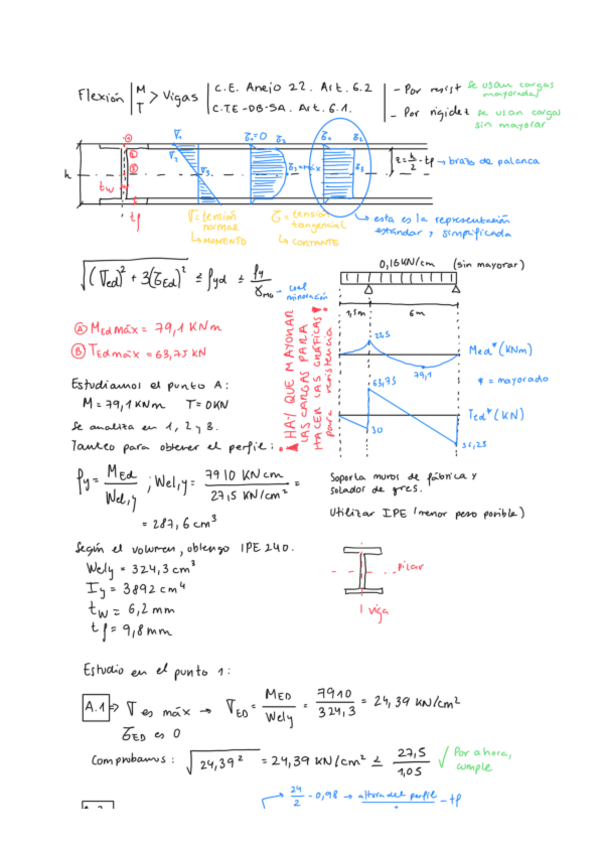 Flexión | M T > Vigas | C.E. Anejo 22. Art. 6.2
C.TE-DB-SA. Art. 6.1.
- Por resist se usan cargas mayoradas
- Por rigidez se usan cargas sin mayorar
h
tw
tf
z = h/2 - tf → brazo de palanca
σ = tensión normal
↳ MOMENTO
τ = tensión tangencial
↳ CORTANTE
↳ esta es la representación estándar y simplificada
√((σEd)² + 3(τEd)²) ≤ fyd ≤ fy/γM0 → coef minoración
0,16KN/cm (sin mayorar)
1,5m
6m
Ⓐ MEd máx = 79,1 KNm
Ⓑ TEd máx = 63,75 KN
¡HAY QUE MAYORAR LAS CARGAS PARA HACER LAS GRÁFICAS! para resistencia
22,5
79,1
Med* (KNm)
* = mayorado
63,75
30
56,25
Ted* (KN)
Estudiamos el punto A:
M = 79,1 KNm T = 0KN
Se analiza en 1, 2 y 3.
Tanteo para obtener el perfil:
fy = MEd/Wel,y ; Wel,y = 7910 KNcm / 27,5 KN/cm² =
= 287,6 cm³
Soporta muros de fábrica y
solador de gres.
Utilizar IPE (menor peso posible)
Según el volumen, obtengo IPE 240.
Wely = 324,3 cm³
Iy = 3892 cm⁴
tw = 6,2 mm
tf = 9,8 mm
pilar
viga
Estudio en el punto 1:
A.1 ⇒ σ es máx → σED = MED/Wely = 7910/324,3 = 24,39 KN/cm²
τED es 0
Comprobamos: √(24,39²) = 24,39 KN/cm² ≤ 27,5/1,05 ✓ Por ahora, cumple
24/2 - 0,98 → altura del perfil - tf